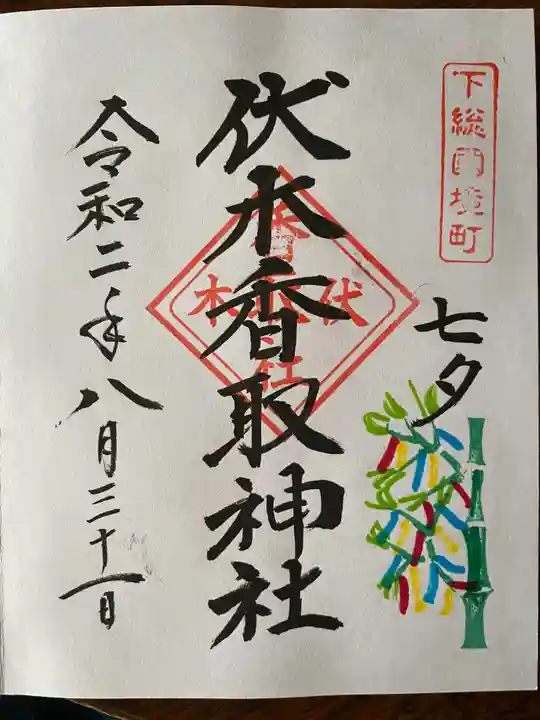 下総国境町
七夕
伏木香取神社
伏木香取社
令和二年八月三十一日